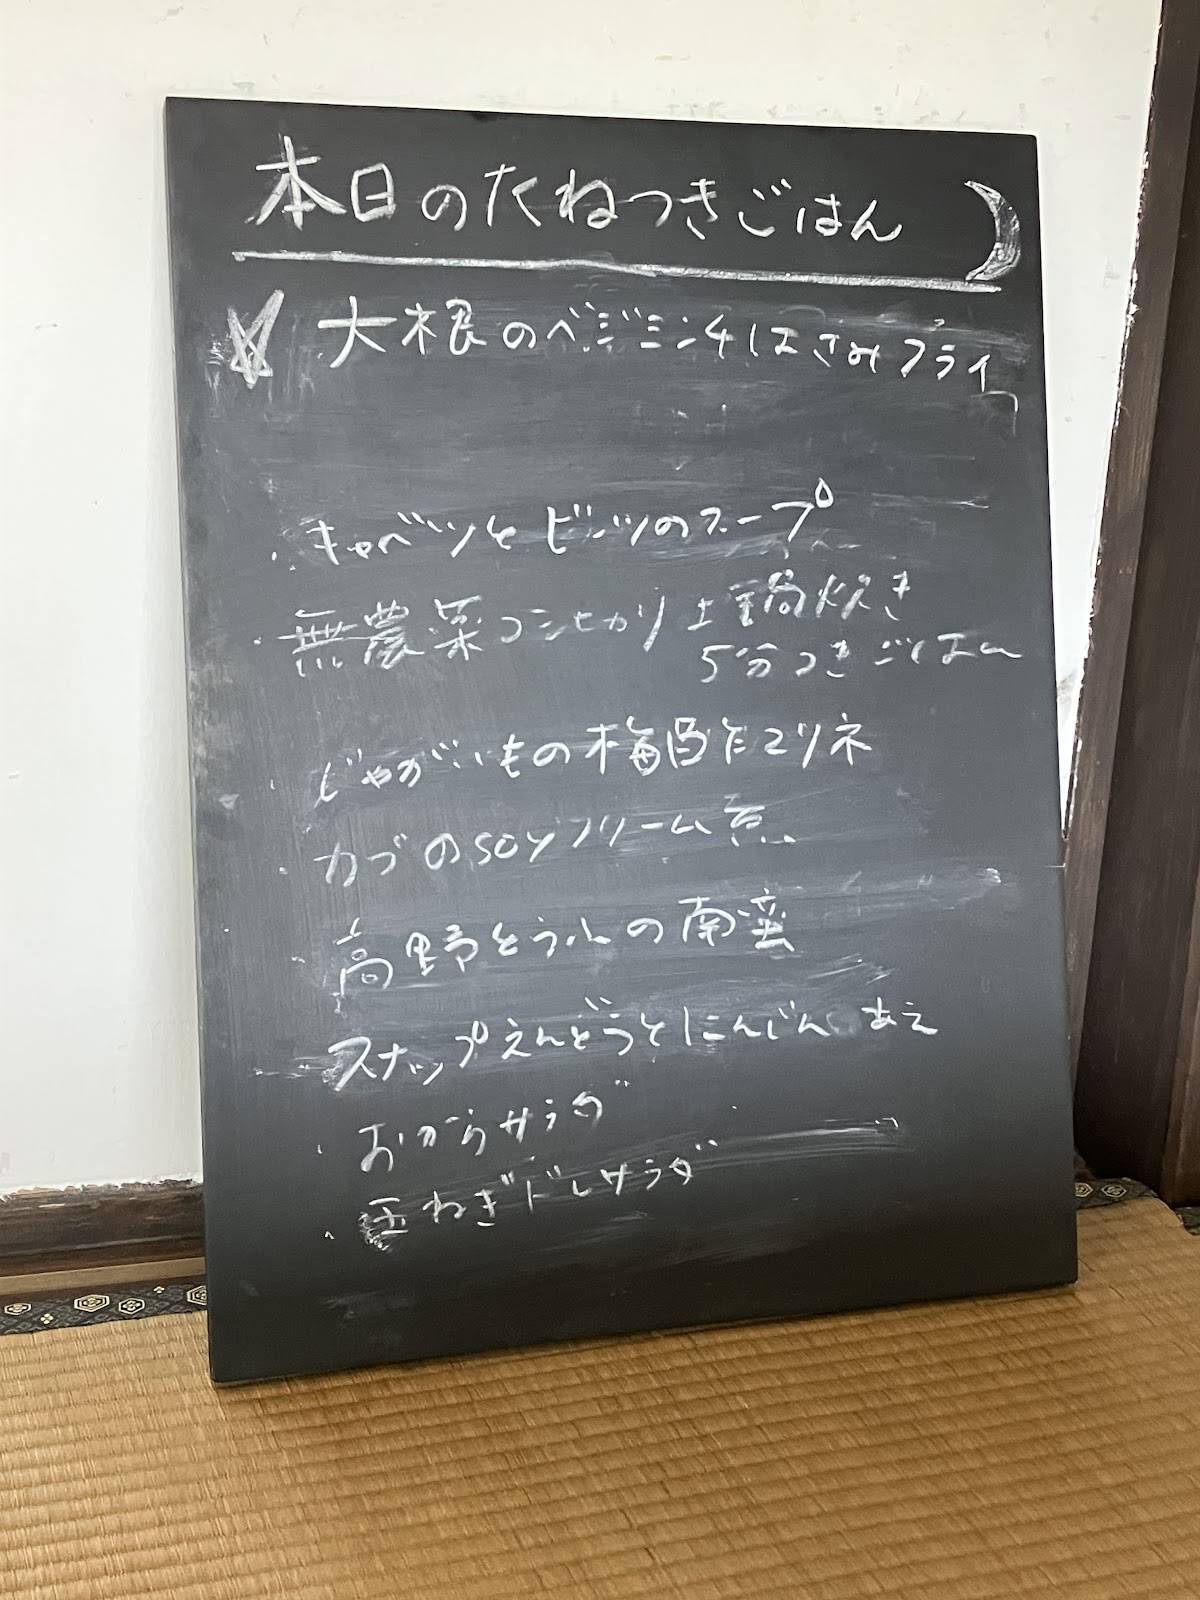 本日のたねつきごはん
大根のベジミンチはさみフライ
・キャベツとビーツのスープ
・無農薬コシヒカリ土鍋炊き
5分つきごはん
・じゃがいもの梅昆布マリネ
・カブのsoyクリーム煮
高野とうふの南蛮
スナップえんどうとにんじん あえ
・おからサラダ
・玉ねぎドレサラダ